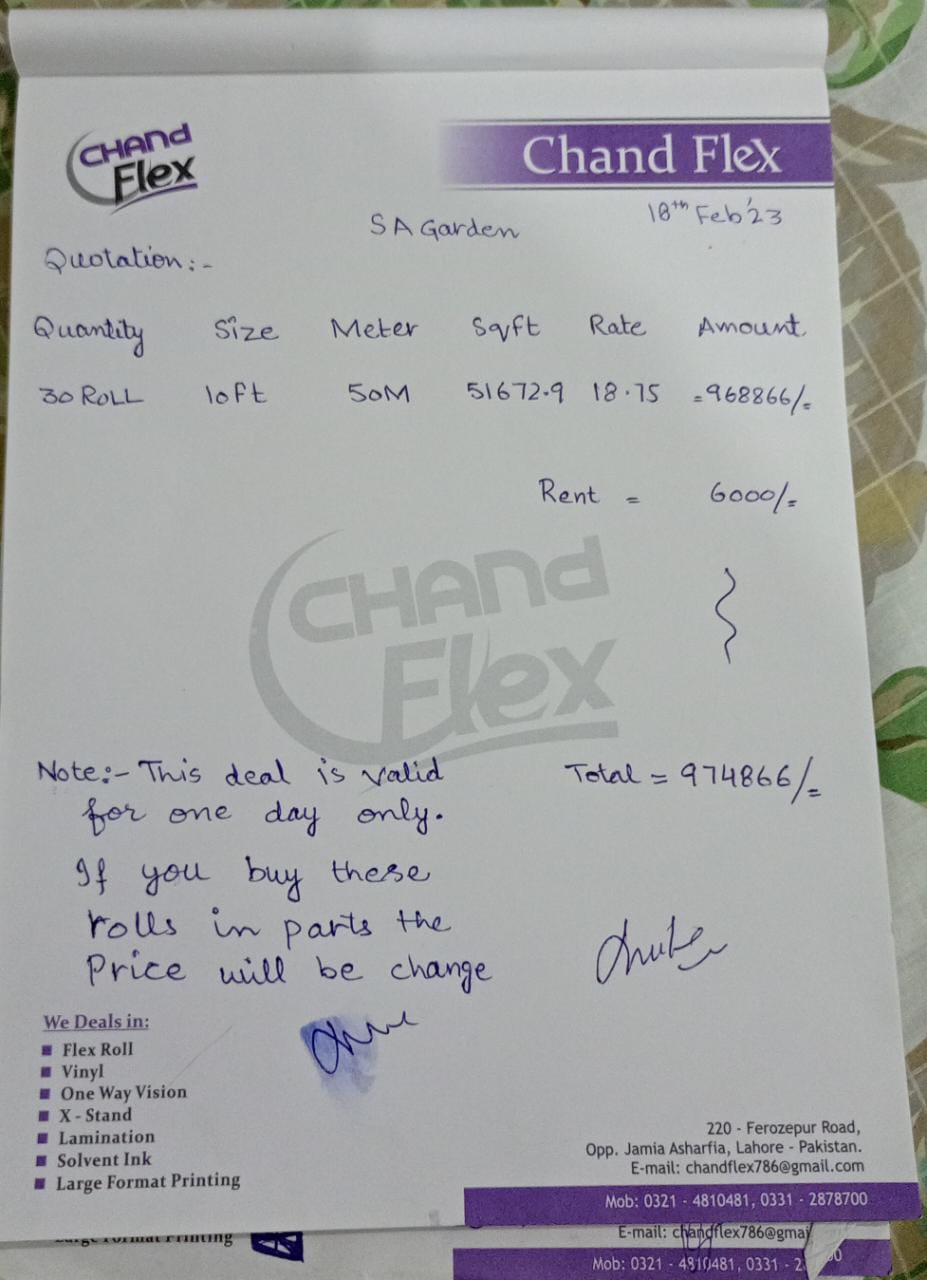 CHAND
Flex
Chand Flex
SA Garden
18th Feb'23
Quotation:-
Quantity Size Meter Sqft Rate Amount
30 ROLL 10ft 50M 51672.9 18.75 =968866/=
Rent = 6000/=
CHAND
Flex
Note:- This deal is valid
for one day only.
If you buy these
rolls in parts the
Price will be change
Total = 974866/=
We Deals in:
Flex Roll
Vinyl
One Way Vision
X - Stand
Lamination
Solvent Ink
Large Format Printing
220 - Ferozepur Road,
Opp. Jamia Asharfia, Lahore - Pakistan.
E-mail: chandflex786@gmail.com
Mob: 0321 - 4810481, 0331 - 2878700
Large Format Printing
E-mail: chandflex786@gmai
Mob: 0321 - 4810481, 0331 - 2